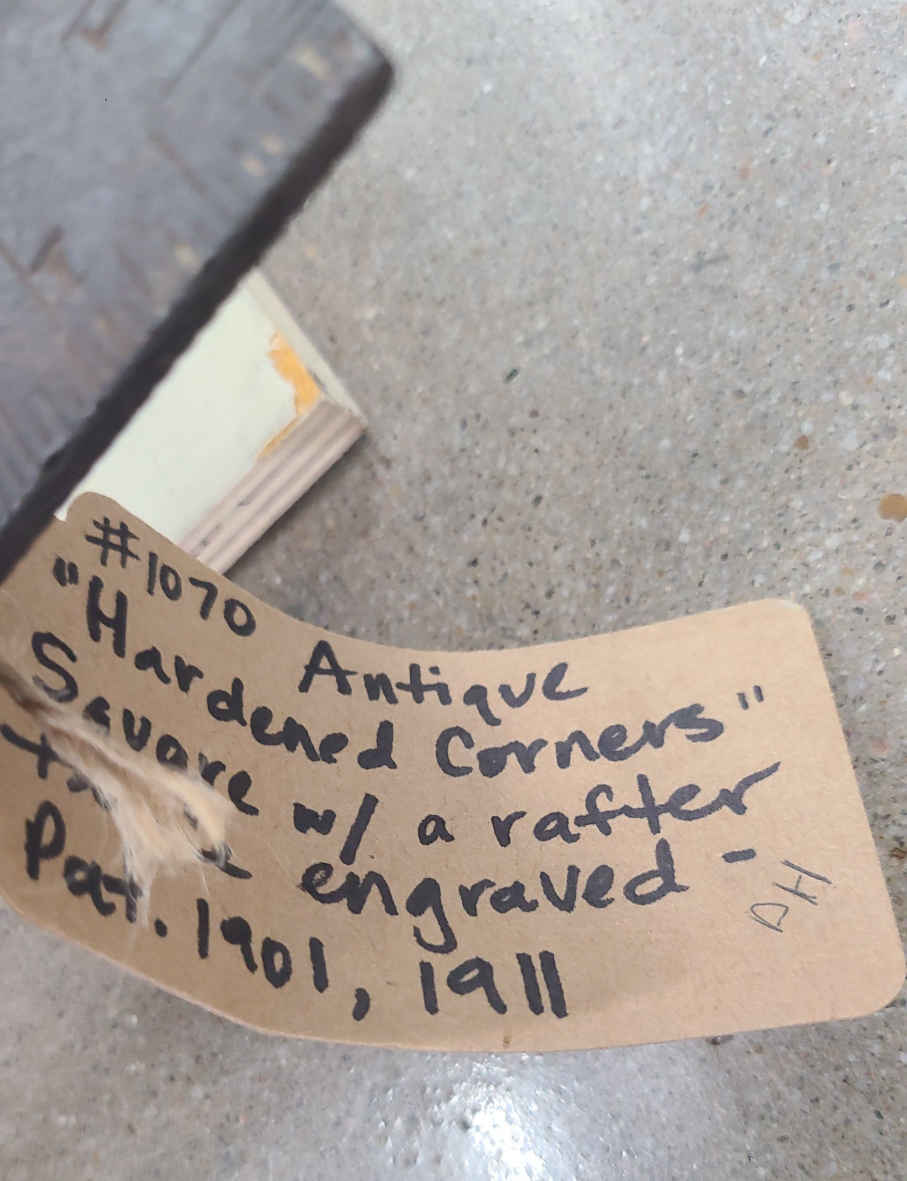 #1070 Antique
"Hardened Corners"
Square w/ a rafter
engraved -
Pat. 1901, 1911
DH